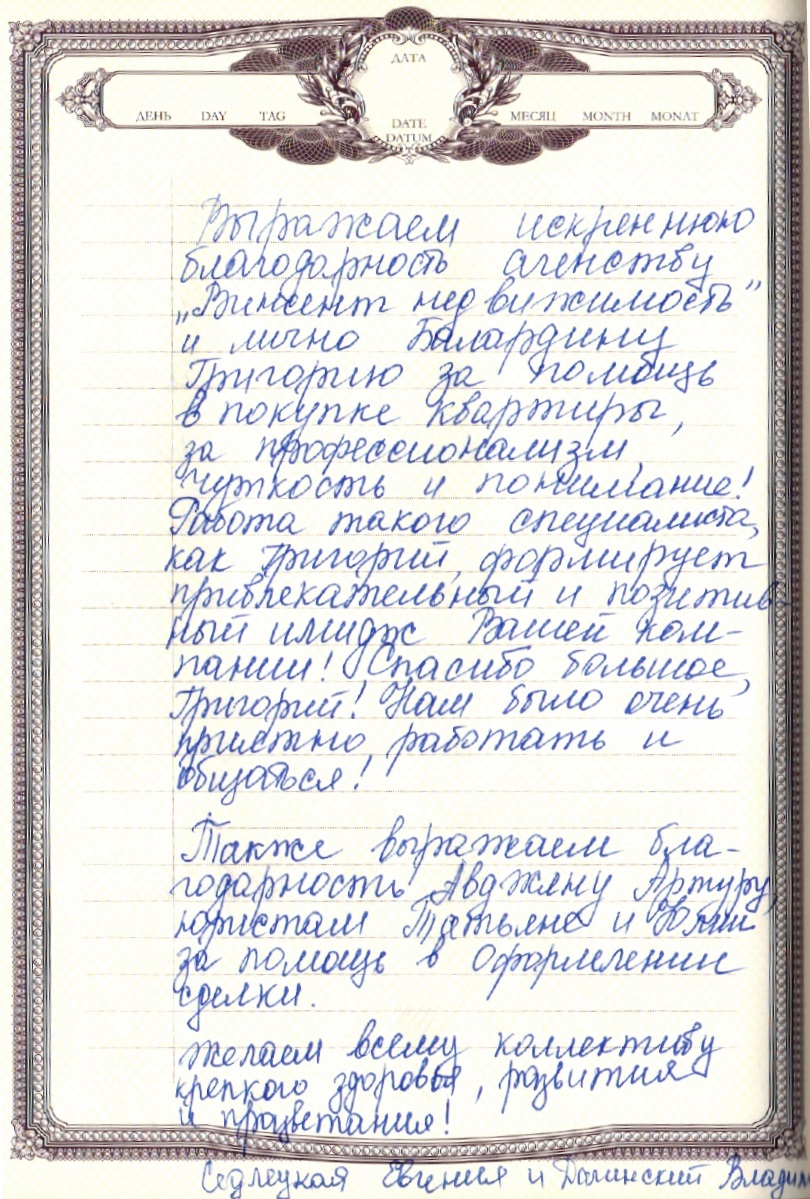 ДАТА
ДЕНЬ DAY TAG
DATE
DATUM
МЕСЯЦ MONTH MONAT
Выражаем искреннюю
благодарность агенству
„Винсент недвижимость”
и лично Балардину
Григорию за помощь
в покупке квартиры,
за профессионализм,
чуткость и понимание!
Работа такого специалиста,
как Григорий, формирует
привлекательный и позитив-
ный имидж Вашей ком-
пании! Спасибо большое,
Григорий! Нам было очень
приятно работать и
общаться!
Также выражаем бла-
годарность Авджяну Артуру,
юристам Татьяне и Юлии
за помощь в оформлении
сделки.
Желаем всему коллективу
крепкого здоровья, развития
и процветания!
Седлецкая Евгения и Долинский Влади